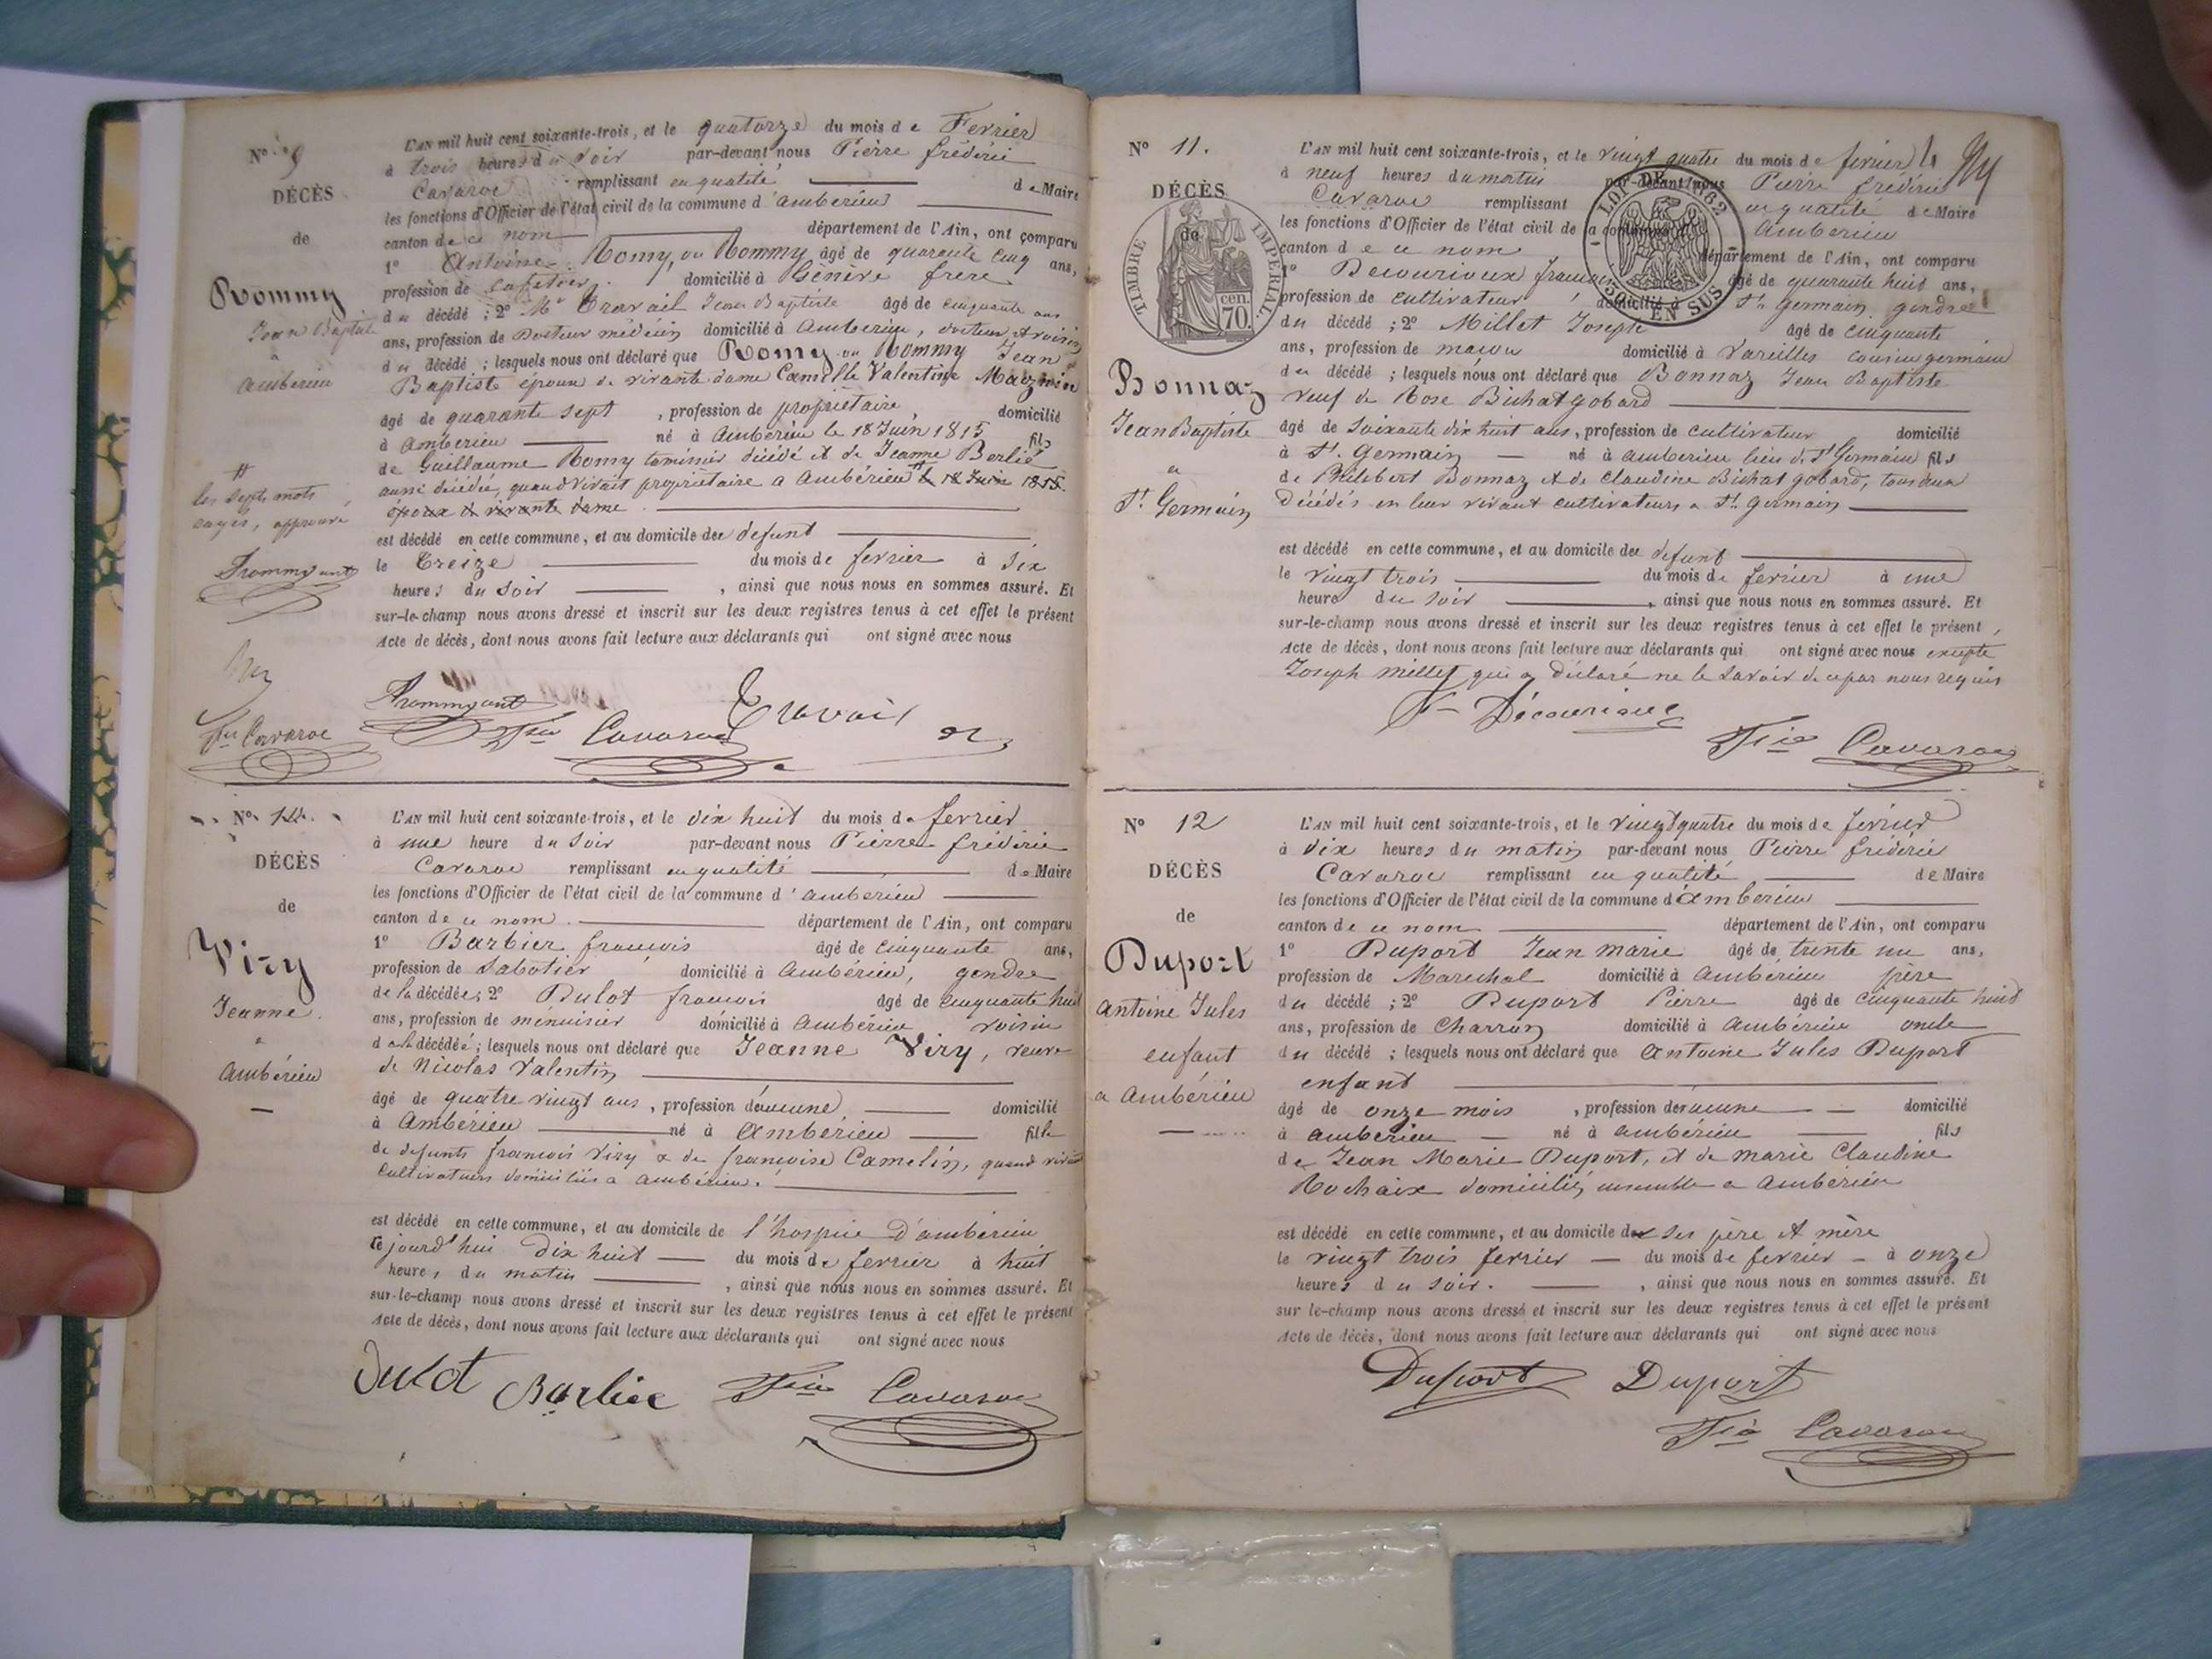 N° 9
DÉCÈS
de
Rommy
Jean Baptiste
à
Ambérieu
#
les sept mots
rayés, approuvé
L'AN mil huit cent soixante-trois, et le quatorze du mois de Fevrier
à trois heures du soir par-devant nous Pierre fréderic
Cavaroc remplissant en qualité de Maire
les fonctions d'Officier de l'état civil de la commune d'ambérieu
canton de ce nom département de l'Ain, ont comparu
1° Antoine Romy, ou Rommy âgé de quarante cinq ans,
profession de cafetier domicilié à Génève frere
du décédé ; 2° Mr Travail Jean Baptiste âgé de cinquante ans
ans, profession de Docteur médecin domicilié à Ambérieu, docteur et voisin
du décédé ; lesquels nous ont déclaré que Romy ou Rommy Jean
Baptiste époux de vivante dame Camille Valentine
âgé de quarante sept , profession de propriétaire, domicilié
à ambérieu né à Ambérieu le 18 Juin 1815 fils
de Guillaume Romy décédé et de Jeanne Berlié
aussi décédée, quand vivait propriétaire a Ambérieu # le 18 Juin 1815.
époux de vivante dame
est décédé en cette commune, et au domicile du defunt
le treize du mois de fevrier à six
heures du soir , ainsi que nous nous en sommes assuré. Et
sur-le-champ nous avons dressé et inscrit sur les deux registres tenus à cet effet le présent
Acte de décès, dont nous avons fait lecture aux déclarants qui ont signé avec nous
Travail
Cavaroc
Cavaroc
N° 10.
DÉCÈS
de
Viry
Jeanne
a
Ambérieu
L'AN mil huit cent soixante-trois, et le dix huit du mois de fevrier
à une heure du soir par-devant nous Pierre fréderic
Cavaroc remplissant en qualité de Maire
les fonctions d'Officier de l'état civil de la commune d'ambérieu
canton de ce nom département de l'Ain, ont comparu
1° Barbier francois âgé de cinquante ans,
profession de sabotier domicilié à Ambérieu, gendre
de la décédée ; 2° Dulot francois âgé de cinquante huit
ans, profession de ménuisier domicilié à Ambérieu voisin
de la décédée ; lesquels nous ont déclaré que Jeanne Viry, veuve
de Nicolas Valentin
âgé de quatre vingt ans , profession d'aucune domicilié
à Ambérieu né à Ambérieu fille
de defunts francois Viry & de francoise Camelin, quand vivait
cultivateurs domiciliés a Ambérieu.
est décédé en cette commune, et au domicile de l'hospice d'ambérieu
ce jourd'hui dix huit du mois de fevrier à huit
heures du matin , ainsi que nous nous en sommes assuré. Et
sur-le-champ nous avons dressé et inscrit sur les deux registres tenus à cet effet le présent
Acte de décès, dont nous avons fait lecture aux déclarants qui ont signé avec nous
Dulot Barbier Cavaroc
N° 11.
DÉCÈS
de
TIMBRE IMPERIAL
70 cen.
Bonnaz
Jean Baptiste
a
St Germain
LOI DE 1862
50% EN SUS
L'AN mil huit cent soixante-trois, et le vingt quatre du mois de fevrier
à neuf heures du matin par-devant nous Pierre fréderic
Cavaroc remplissant en qualité de Maire
les fonctions d'Officier de l'état civil de la commune d'Ambérieu
canton de ce nom département de l'Ain, ont comparu
1° Decourioux francois âgé de quarante huit ans,
profession de cultivateur domicilié à St Germain gendre
du décédé ; 2° Millet Joseph âgé de cinquante
ans, profession de macon domicilié à Vareilles cousin germain
du décédé ; lesquels nous ont déclaré que Bonnaz Jean Baptiste
veuf de Rose Bichat gobard
âgé de soixante dix huit ans, profession de cultivateur domicilié
à St Germain né à ambérieu lieu de St Germain fils
de Philibert Bonnaz et de Claudine Bichat gobard, tous deux
décédés en leur vivant cultivateurs a St germain
est décédé en cette commune, et au domicile du defunt
le vingt trois du mois de fevrier à une
heure du soir , ainsi que nous nous en sommes assuré. Et
sur-le-champ nous avons dressé et inscrit sur les deux registres tenus à cet effet le présent
Acte de décès, dont nous avons fait lecture aux déclarants qui ont signé avec nous excepté
Joseph millet qui a déclaré ne le savoir de ce par nous requis
Cavaroc
N° 12
DÉCÈS
de
Duport
Antoine Jules
enfant
a Ambérieu
L'AN mil huit cent soixante-trois, et le vingt quatre du mois de fevrier
à dix heures du matin par-devant nous Pierre fréderic
Cavaroc remplissant en qualité de Maire
les fonctions d'Officier de l'état civil de la commune d'Ambérieu
canton de ce nom département de l'Ain, ont comparu
1° Duport Jean marie âgé de trente un ans,
profession de Marechal domicilié à Ambérieu père
du décédé ; 2° Duport Pierre âgé de cinquante huit
ans, profession de Charron domicilié à Ambérieu oncle
du décédé ; lesquels nous ont déclaré que Antoine Jules Duport
enfant
âgé de onze mois , profession d'aucune domicilié
à ambérieu né à ambérieu fils
de Jean Marie Duport, et de marie Claudine
Rochaix domiciliés ensemble a Ambérieu
est décédé en cette commune, et au domicile de ses père et mère
le vingt trois fevrier du mois de fevrier à onze
heures du soir. , ainsi que nous nous en sommes assuré. Et
sur le-champ nous avons dressé et inscrit sur les deux registres tenus à cet effet le présent
Acte de décès, dont nous avons fait lecture aux déclarants qui ont signé avec nous
Duport Duport
Cavaroc